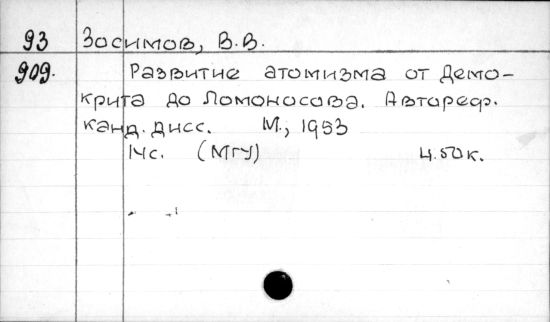 93 Зосимов, В.В.
909. Развитие атомизма от Демо-
крита до Ломоносова. Автореф.
канд. дисс. М., 1953
14с. (МГУ) ц. 50к.